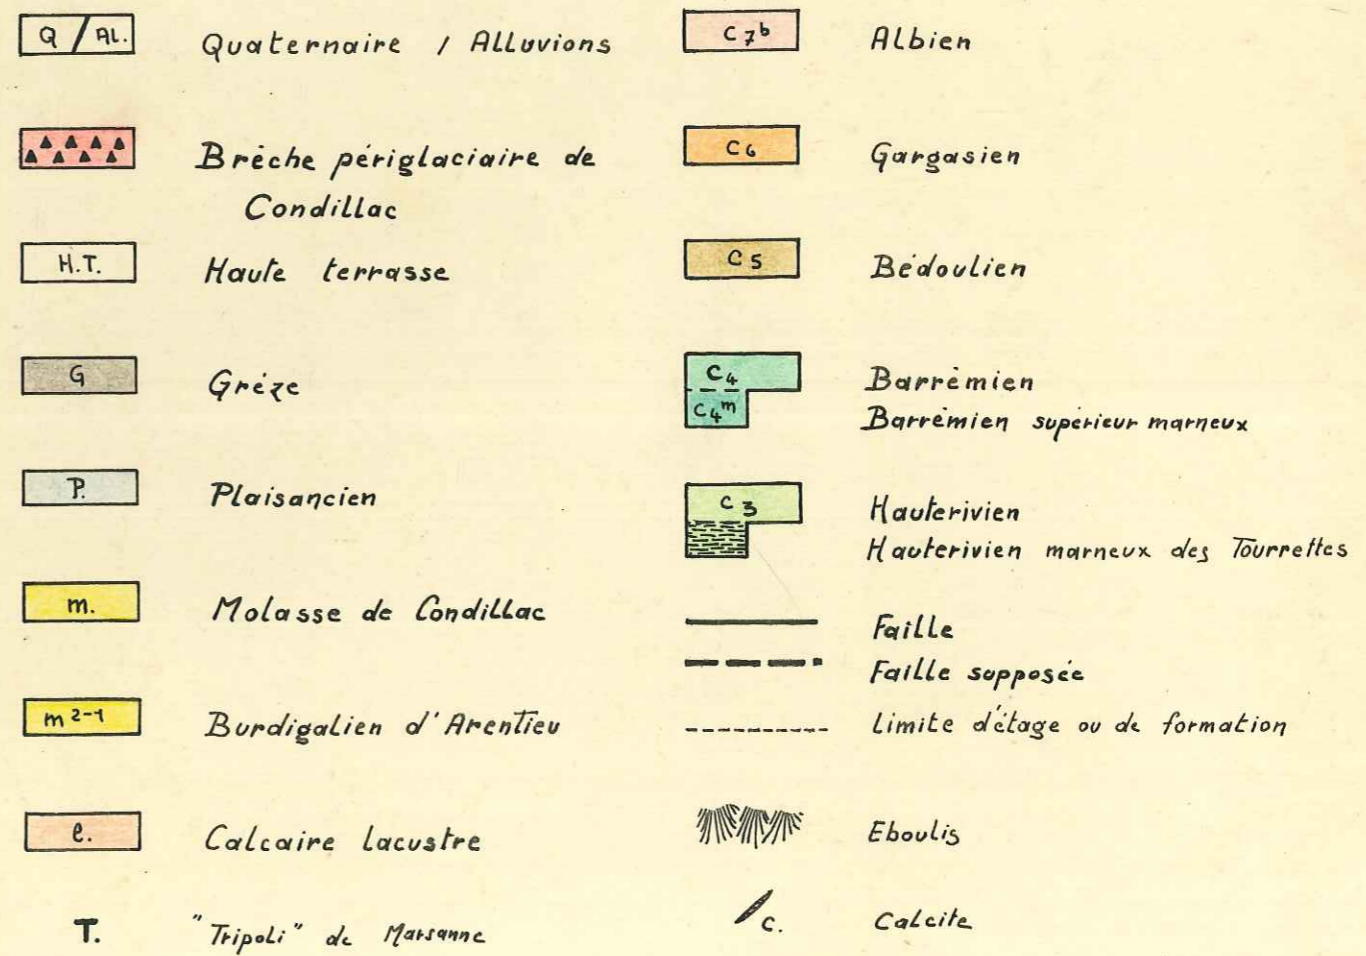 Q / AL. Quaternaire / Alluvions
Brèche périglaciaire de
Condillac
H.T. Haute terrasse
G Grèze
P. Plaisancien
m. Molasse de Condillac
m 2-1 Burdigalien d'Arentieu
e. Calcaire lacustre
T. "Tripoli" de Marsanne
C7b Albien
C6 Gargasien
C5 Bédoulien
C4 Barrèmien
C4m Barrèmien supérieur marneux
C3 Hauterivien
Hauterivien marneux des Tourrettes
Faille
Faille supposée
Limite d'étage ou de formation
Eboulis
c. Calcite